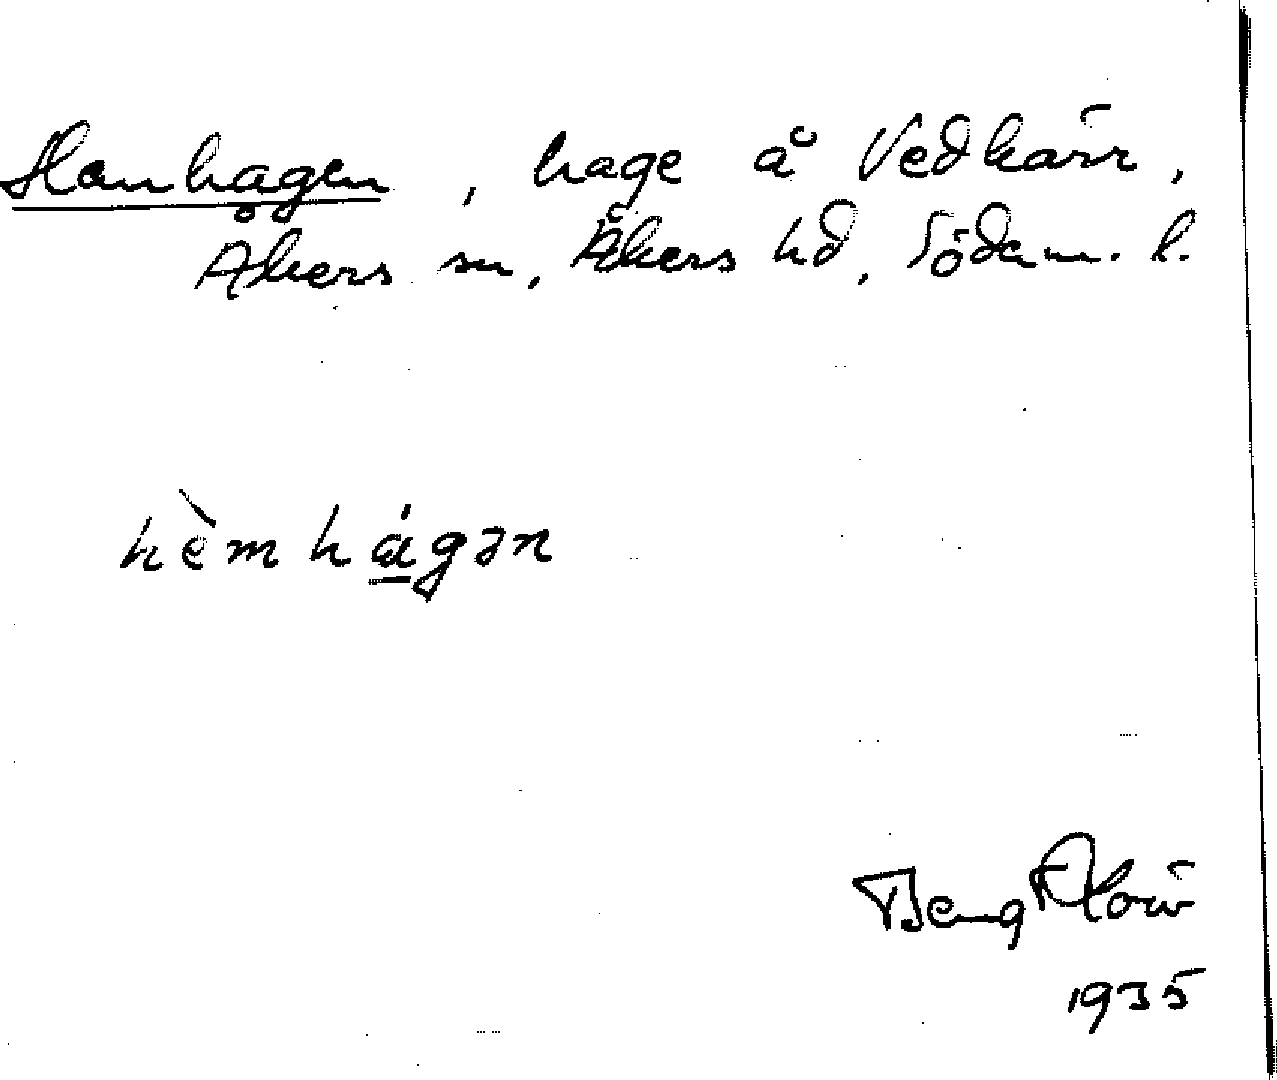 Hamhagen, hage å Vedkärr,
Åkers sn, Åkers hd, Söderm. l.
hèmhágən
1935